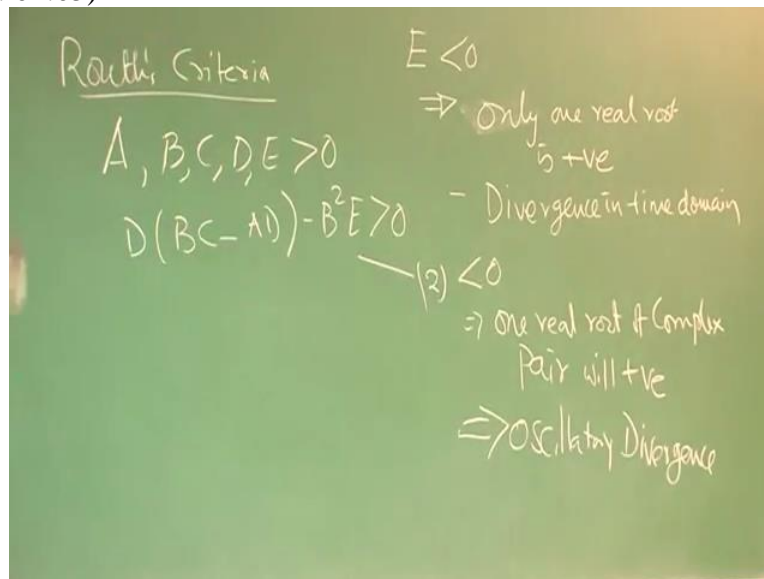 Routh's Criteria
A, B, C, D, E > 0
D(BC - AD) - B²E > 0
E < 0
⇒ Only one real root
is +ve
- Divergence in time domain
(2) < 0
⇒ one real root of Complex
Pair will +ve
⇒ Oscillatory Divergence